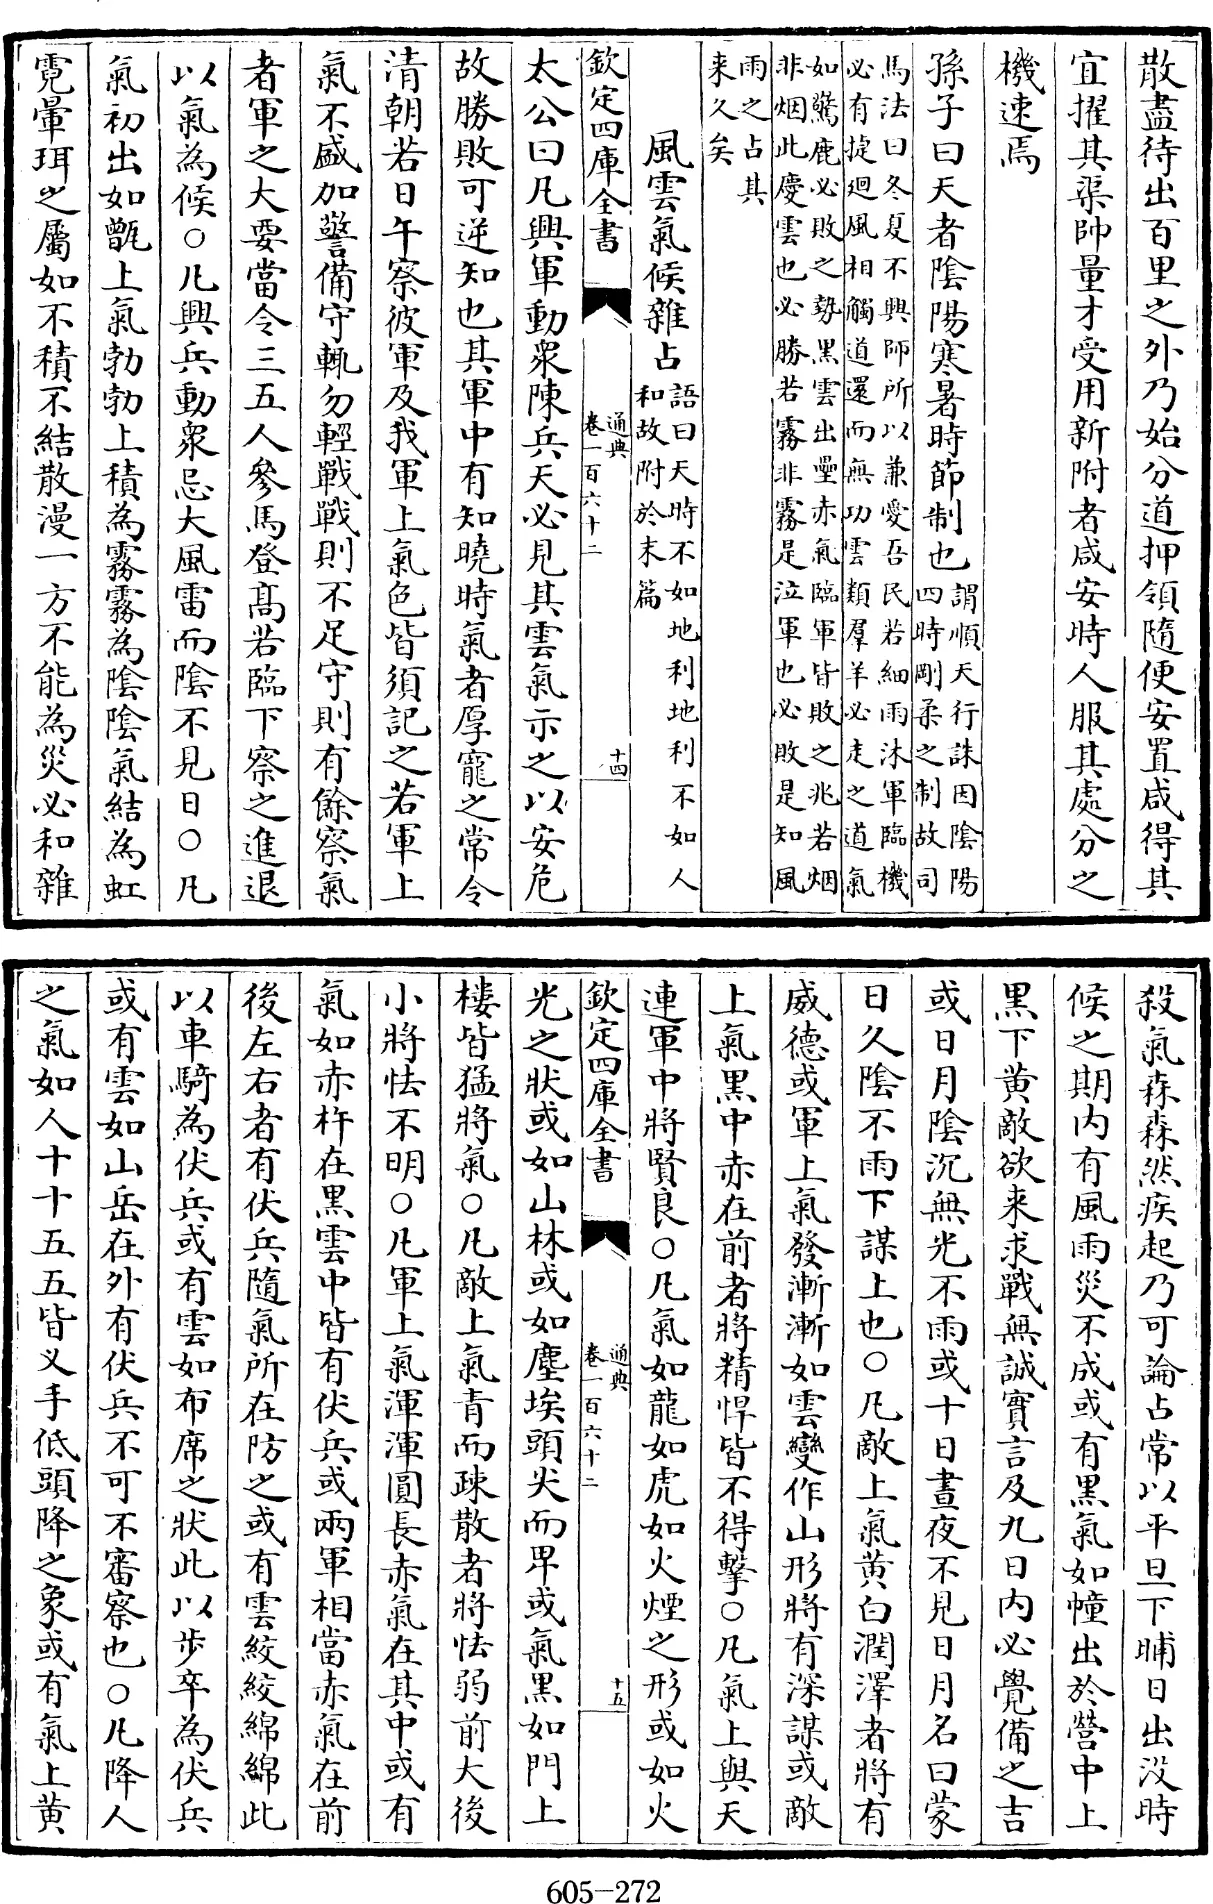 散盡待出百里之外乃始分道押領隨便安置咸得其
宜擢其渠帥量才受用新附者咸安時人服其處分之
機速焉
孫子曰天者陰陽寒暑時節制也謂順天行誅因陰陽四時剛柔之制故司
馬法曰冬夏不興師所以兼愛吾民若細雨沐軍臨機
必有捷廻風相觸道還而無功雲類羣羊必走之道氣
如驚鹿必敗之勢黑雲出壘赤氣臨軍皆敗之兆若烟
非烟此慶雲也必勝若霧非霧是泣軍也必敗是知風
雨之占其
来久矣
風雲氣候雜占語曰天時不如地利地利不如人和故附於末篇
欽定四庫全書 通典 卷一百六十二 十四
太公曰凡興軍動衆陳兵天必見其雲氣示之以安危
故勝敗可逆知也其軍中有知曉時氣者厚寵之常令
清朝若日午察彼軍及我軍上氣色皆須記之若軍上
氣不盛加警備守輒勿輕戰戰則不足守則有餘察氣
者軍之大要當令三五人參馬登高若臨下察之進退
以氣為候○凡興兵動衆忌大風雷而陰不見日○凡
氣初出如甑上氣勃勃上積為霧霧為陰陰氣結為虹
霓暈珥之屬如不積不結散漫一方不能為災必和雜
殺氣森森然疾起乃可論占常以平旦下晡日出沒時
候之期内有風雨災不成或有黑氣如幢出於營中上
黑下黄敵欲来求戰無誠實言及九日内必覺備之吉
或日月陰沉無光不雨或十日晝夜不見日月名曰蒙
日久陰不雨下謀上也○凡敵上氣黄白潤澤者將有
威德或軍上氣發漸漸如雲變作山形將有深謀或敵
上氣黑中赤在前者將精悍皆不得擊○凡氣上與天
連軍中將賢良○凡氣如龍如虎如火煙之形或如火
欽定四庫全書 通典 卷一百六十二 十五
光之狀或如山林或如塵埃頭尖而早或氣黑如門上
樓皆猛將氣○凡敵上氣青而疎散者將怯弱前大後
小將怯不明○凡軍上氣渾渾圓長赤氣在其中或有
氣如赤杵在黑雲中皆有伏兵或兩軍相當赤氣在前
後左右者有伏兵隨氣所在防之或有雲絞絞綿綿此
以車騎為伏兵或有雲如布席之狀此以步卒為伏兵
或有雲如山岳在外有伏兵不可不審察也○凡降人
之氣如人十十五五皆义手低頭降之象或有氣上黄
605-272